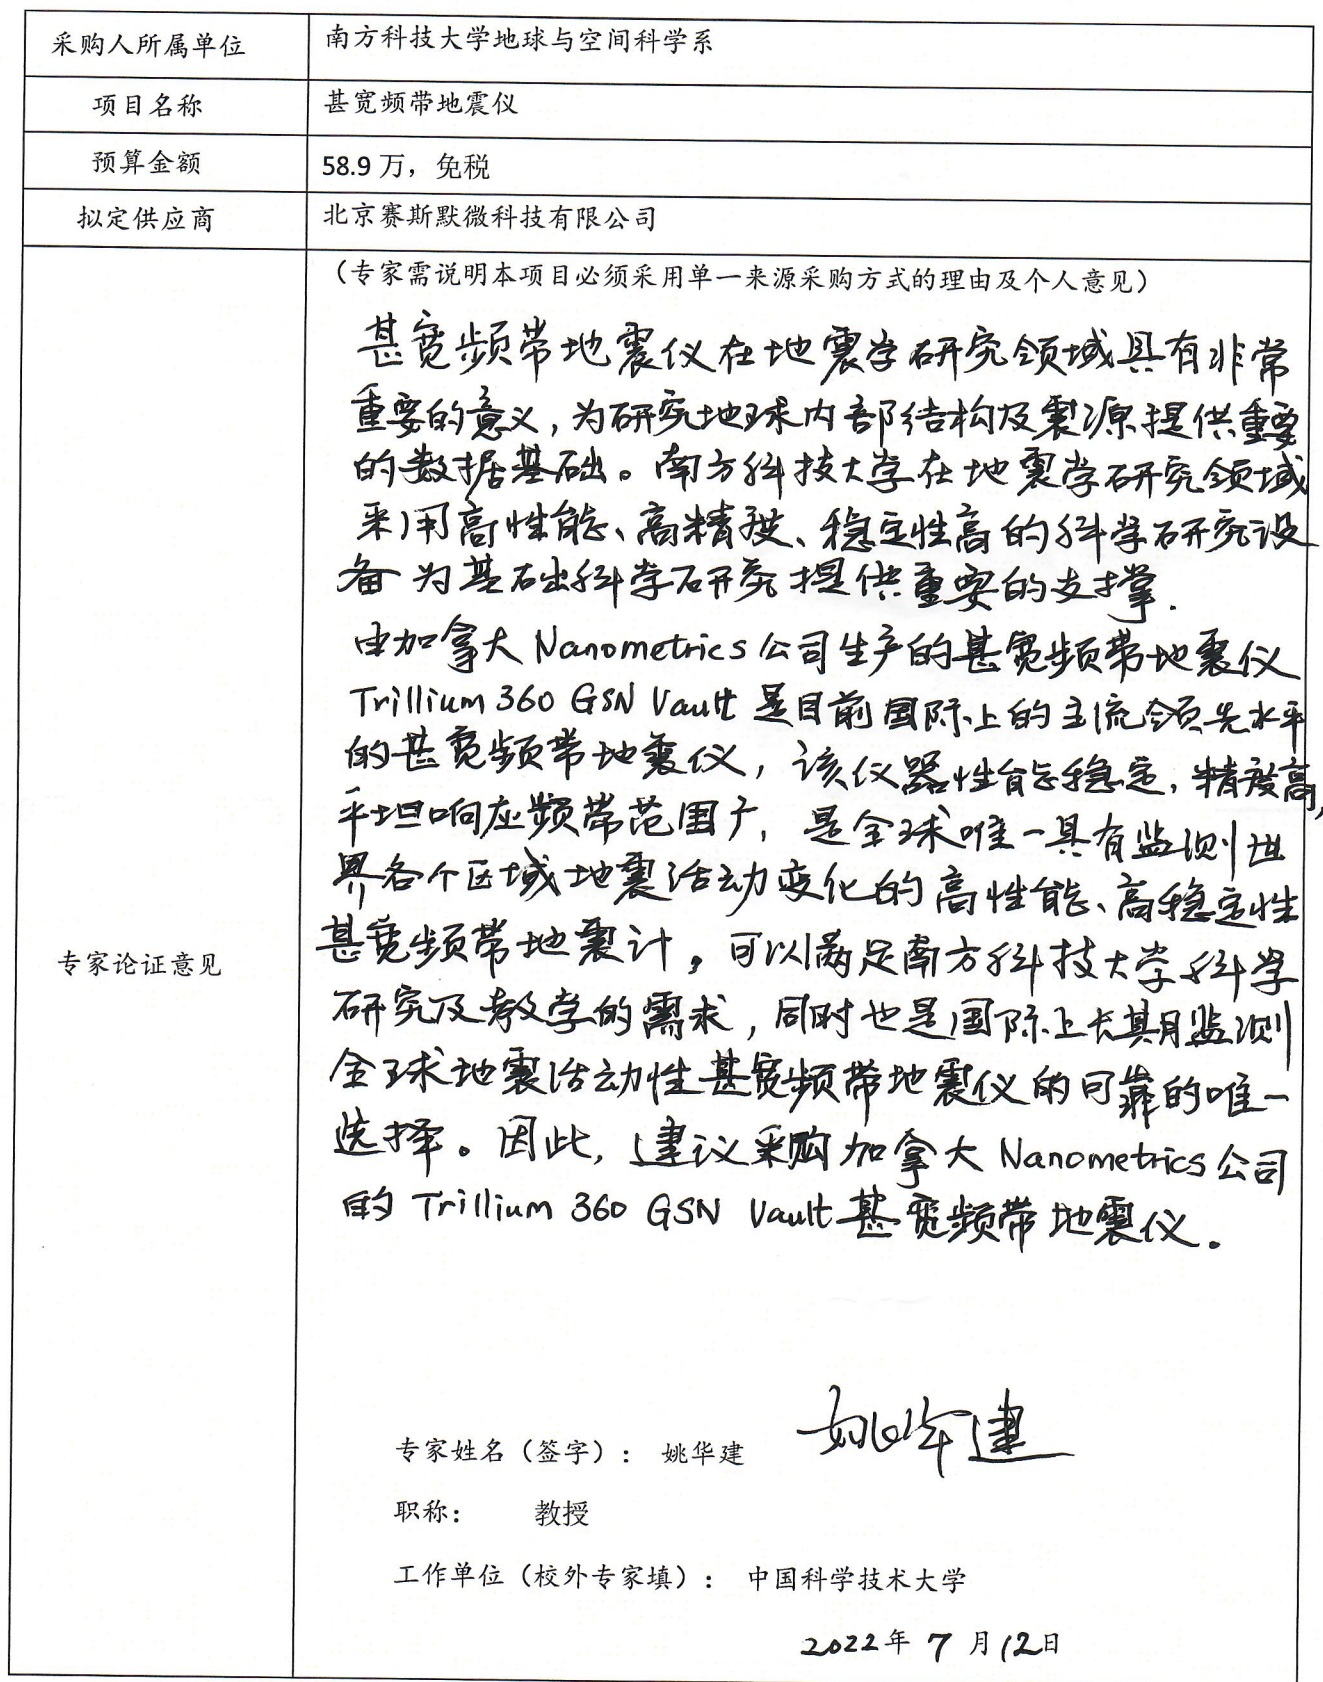 采购人所属单位 南方科技大学地球与空间科学系
项目名称 甚宽频带地震仪
预算金额 58.9 万，免税
拟定供应商 北京赛斯默微科技有限公司
（专家需说明本项目必须采用单一来源采购方式的理由及个人意见）
甚宽频带地震仪在地震学研究领域具有非常
重要的意义，为研究地球内部结构及震源提供重要
的数据基础。南方科技大学在地震学研究领域
采用高性能、高精度、稳定性高的科学研究设
备为基础科学研究提供重要的支撑.
由加拿大 Nanometrics 公司生产的甚宽频带地震仪
Trillium 360 GSN Vault 是目前国际上的主流领先水平
的甚宽频带地震仪，该仪器性能稳定，精度高，
平坦响应频带范围广，是全球唯一具有监测世
界各个区域地震活动变化的高性能、高稳定性
甚宽频带地震计。可以满足南方科技大学科学
研究及教学的需求，同时也是国际上长期监测
全球地震活动性甚宽频带地震仪的可靠的唯一
选择。因此，建议采购加拿大 Nanometrics 公司
的 Trillium 360 GSN Vault 甚宽频带地震仪。
专家论证意见
专家姓名（签字）： 姚华建 姚华建
职称： 教授
工作单位（校外专家填）： 中国科学技术大学
2022年 7 月 12日